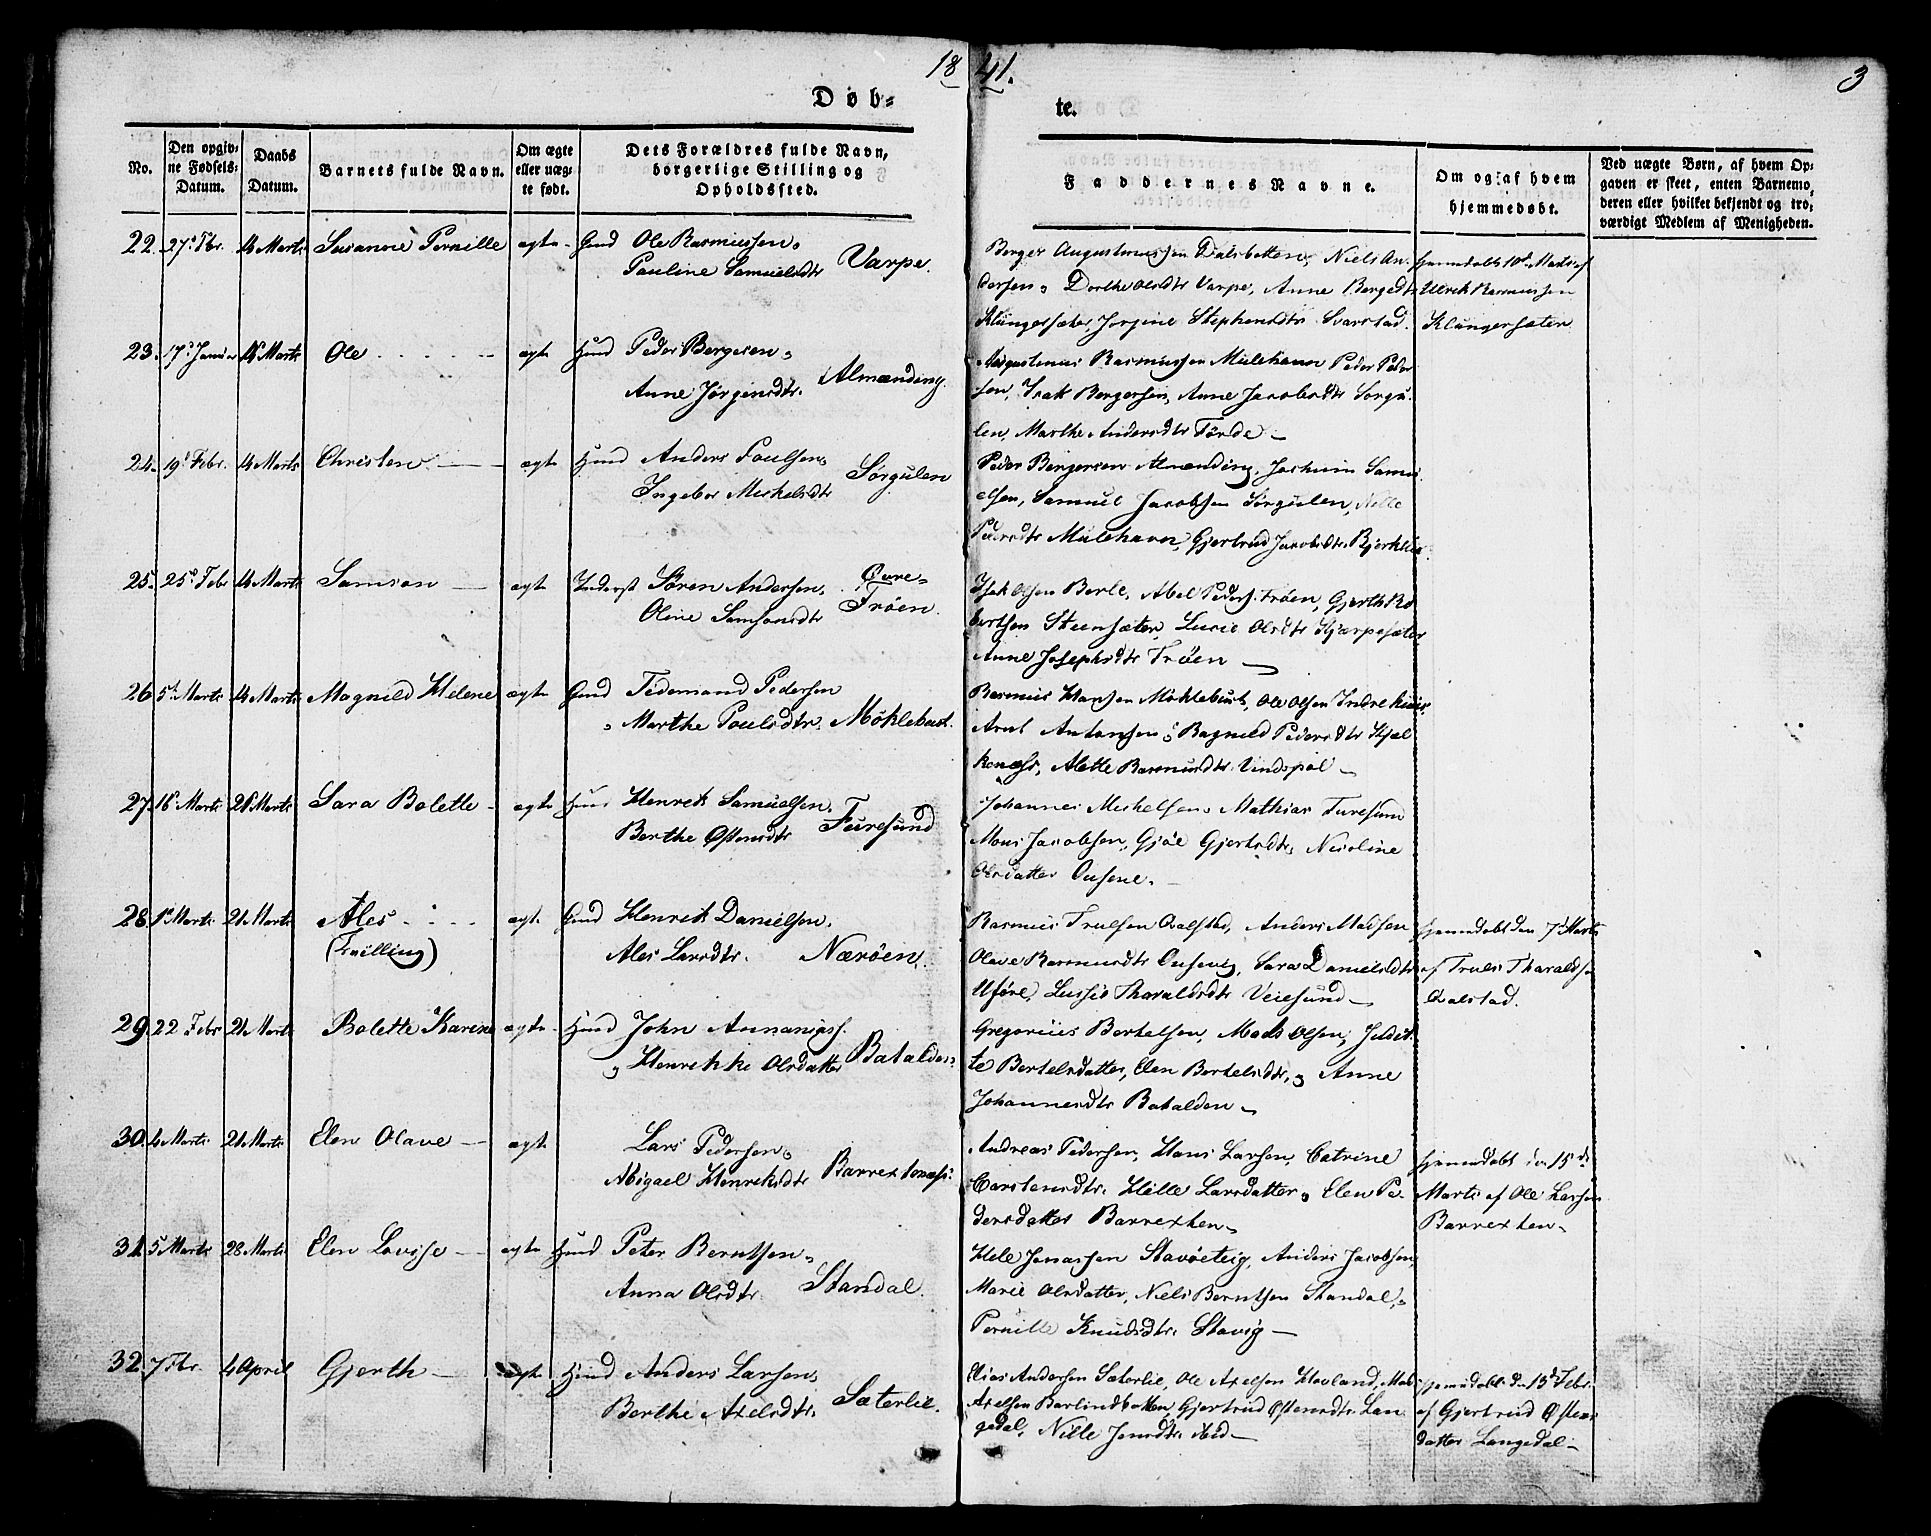 18 41.
3
Döb-
te.
No.
Den opgiv-
ne Fødsels-
Datum.
Daabs
Datum.
Barnets fulde Navn.
Om ægte
eller uæg-
te født.
Dets Forældres fulde Navn,
borgerlige Stilling og
Opholdssted.
Faddernes Navne.
Om og af hvem
hjemmedøbt.
Ved uægte Børn, af hvem Op-
gaven er skeet, enten Barnemo-
deren eller hvilket bekjendt og tro-
værdigt Medlem af Menigheden.
22. 27. Fbr. 14 Marts Susanne Pernille ægte Gmd Ole Rasmussen
Pauline Samuelsdtr Varpe.
Berger Augustinussen Dalsbotten, Niels An-
dersen, Dorthe Olsdtr Varpe, Anne Bergedtr
Klungersæter, Jorgine Stephensdtr Svarstad.
hjemmedøbt 10d Marts af
Ulrik Rasmussen
Klungersæter
23. 17. Januar 14 Marts Ole ægte Huusmd Peder Bergesen
Anne Jörgensdtr. Almending.
Augustinus Rasmussen Mulehavn Peder Peder
sen, Isak Bergersen, Anne Jacobsdtr Sorgu-
len, Marthe Andersdtr Förde
24. 19. Febr. 14 Marts Christen ægte Huusmd Anders Poulsen
Ingebor Mickelsdtr Sorgulen
Peder Bergersen Almending, Jochum Samu-
elsen, Samuel Jacobsen Sörgulen, Nille
Pedersdtr Mulehavn, Gjertrud Jacobsdtr
25. 25. Febr 14 Marts Samson ægte Inderst Sören Andersen,
Oline Samsonsdtr Övre-
Tröen.
Isak Olsen Berle, Abel Peders. Tröen, Gjerth Ro
bertsen Steensæter, Lucie Olsdtr Hjorpesæter
Anne Josephsdtr Tröen
26 5. Marts 14 Marts Magnild Helene ægte Gmd Tidemand Pedersen
Marthe Poulsdtr. Möklebust.
Rasmus Hansen Möklebust, Ole Olsen Indrehuus,
Arnt Antonsen, Ragnild Pedersdtr Hjel
kenæss, Alette Rasmusdtr Vindspol
27. 16 Marts 21 Marts Sara Bolette ægte Henrik Samuelsen,
Berthe Östensdtr Furesund
Johannes Mickelsen, Mathias Furesund
Mons Jacobsen, Gjöe Gjertsdtr, Nicoline
Olsdatter Ousene.
28. 1 Marts 21 Marts Ales
(Tvilling) ægte Gmd Henrik Danielsen.
Ales Larsdtr. Næröen.
Rasmus Trulsen Qvalstad, Anders Madsen
Olave Rasmusdtr Ousevig, Sara Danielsdtr
Uföre, Lussie Tharaldsdtr Veiesund
hjemmedøbt den 7d Marts
af Truls Tharaldsen
Qvalstad.
29. 22 Febr 21 Marts Bolette Karine ægte Huusmd John Annaniass.
Henrikke Olsdatter Batalden
Gregorius Bertelsen, Mads Olsen, Judit-
te Bertelsdatter, Elen Bertelsdtr, Anne
Johannesdtr Batalden
30. 4 Marts. 21 Marts. Elen Olave ægte Lars Pedersen
Abigael Henriksdtr Barrextenæs.
Andreas Pedersen, Hans Larsen, Catrine
Carstensdtr. Hille Larsdatter, Elen Pe-
dersdatter Barrexten
hjemmedøbt den 15de
Marts af Ole Larsen
Barrexten
31. 5 Marts 28 Marts Elen Lovise ægte Huusmd Peter Berntsen
Anna Olsdtr Standal.
Hele Jonassen Stavöeteig, Anders Jacobsen,
Marie Olsdatter, Niels Berntsen Standal,
Pernille Knudsdtr. Stavig
32. 7 Fbr. 4 April Gjerth ægte Huusmd Anders Larsen
Berthe Axelsdtr. Sæterlie.
Elias Andersen Sæterlie, Ole Axelsen Hovland, Mads
Axelsen Barlindbotten, Gjertrud Östensdtr Lan
gedal, Nille Jensdtr Ibid
hjemmedøbt den 15d Febr.
af Gjertrud Östens
datter Langedal